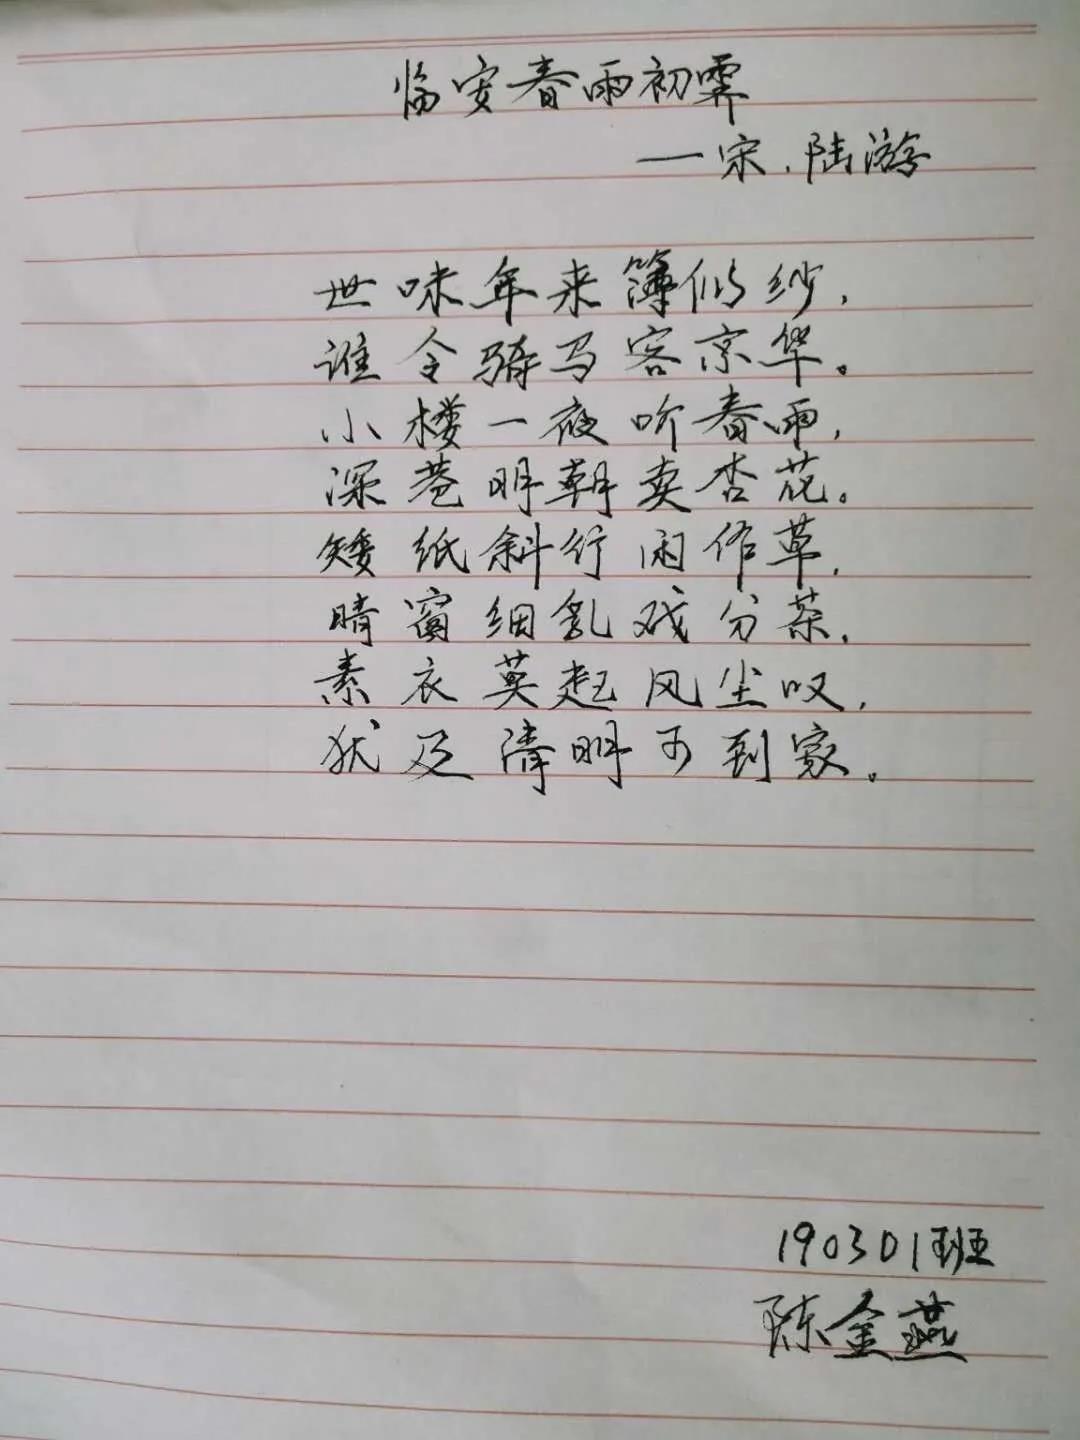 临安春雨初霁
—宋.陆游
世味年来簿似纱,
谁令骑马客京华。
小楼一夜听春雨,
深巷明朝卖杏花。
矮纸斜行闲作草,
晴窗细乳戏分茶,
素衣莫起风尘叹,
犹及清明可到家。
190301班
陈金燕